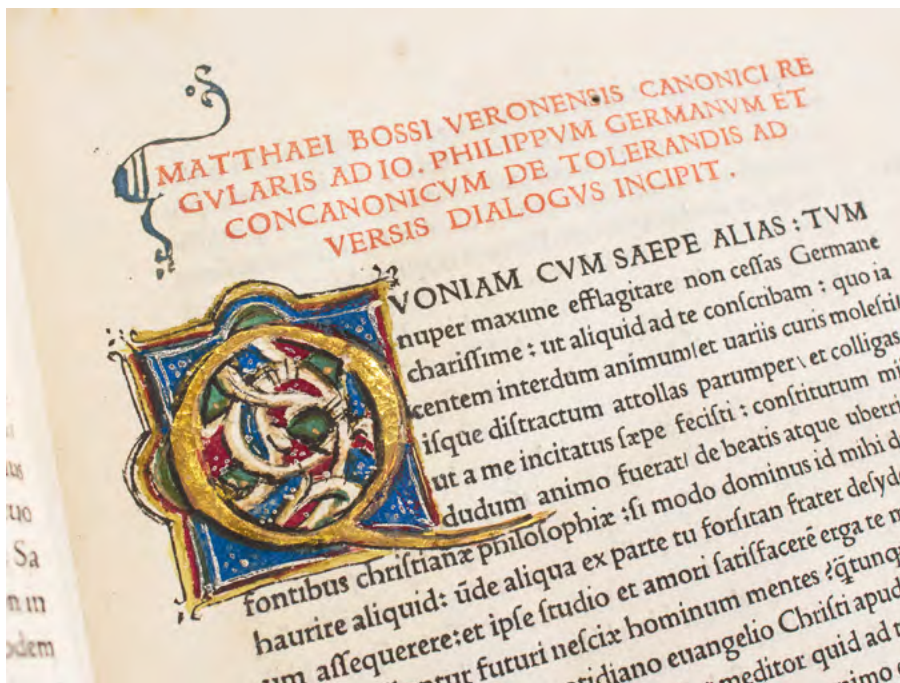 MATTHAEI BOSSI VERONENSIS CANONICI RE
GVLARIS AD IO. PHILIPPVM GERMANVM ET
CONCANONICVM DE TOLERANDIS AD
VERSIS DIALOGVS INCIPIT .
QVONIAM CVM SAEPE ALIAS : TVM
nuper maxime efflagitare non ceſſas Germane
chariſſime : ut aliquid ad te conſcribam : quo ia
centem interdum animum/ et uariis curis moleſti
iſque diſtractum attollas parumper\ et colligas
ut a me incitatus ſæpe feciſti : conſtitutum mi
dudum animo fuerat/ de beatis atque uberri
fontibus chriſtianæ philoſophiæ :ſi modo dominus id mihi d
haurire aliquid: ūde aliqua ex parte tu forſitan frater deſyde
um aſſequerere:et ipſe ſtudio et amori ſatiſfacerē erga te m
futuri neſciæ hominum mentes ?q̄tunq
euangelio Chriſti apud
meditor quid ad t
Sa
n in
odem